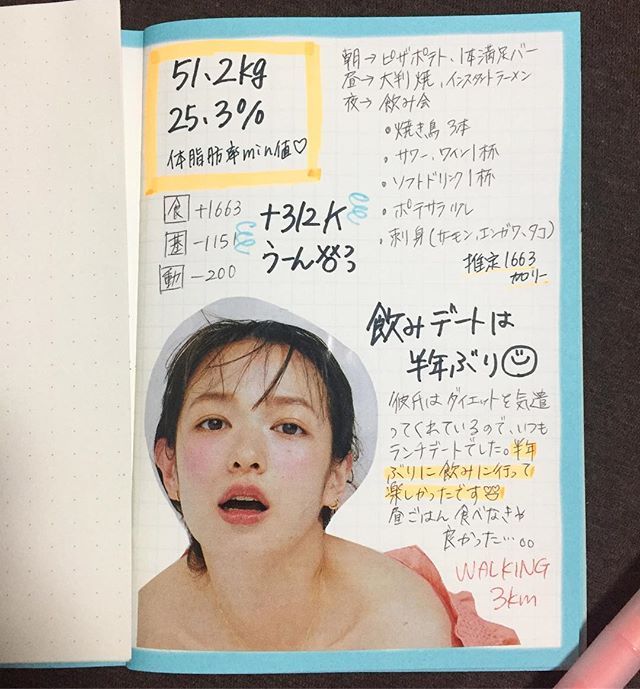 51.2kg
25.3%
体脂肪率min値♡
食 +1663
基 -1151
動 -200
+312K
うーん
朝→ピザポテト、1本満足バー
昼→大判焼、インスタントラーメン
夜→飲み会
•焼き鳥 3本
•サワー、ワイン1杯
•ソフトドリンク1杯
•ポテサラ少し
•刺身(サーモン、エンガワ、タコ)
推定1663
カロリー
飲みデートは
半年ぶり☺
彼氏はダイエットを気遣
ってくれているので、いつも
ランチデートでした。半年
ぶりに飲みに行って
楽しかったです
昼ごはん、食べなきゃ
良かった…。。
WALKING
3km